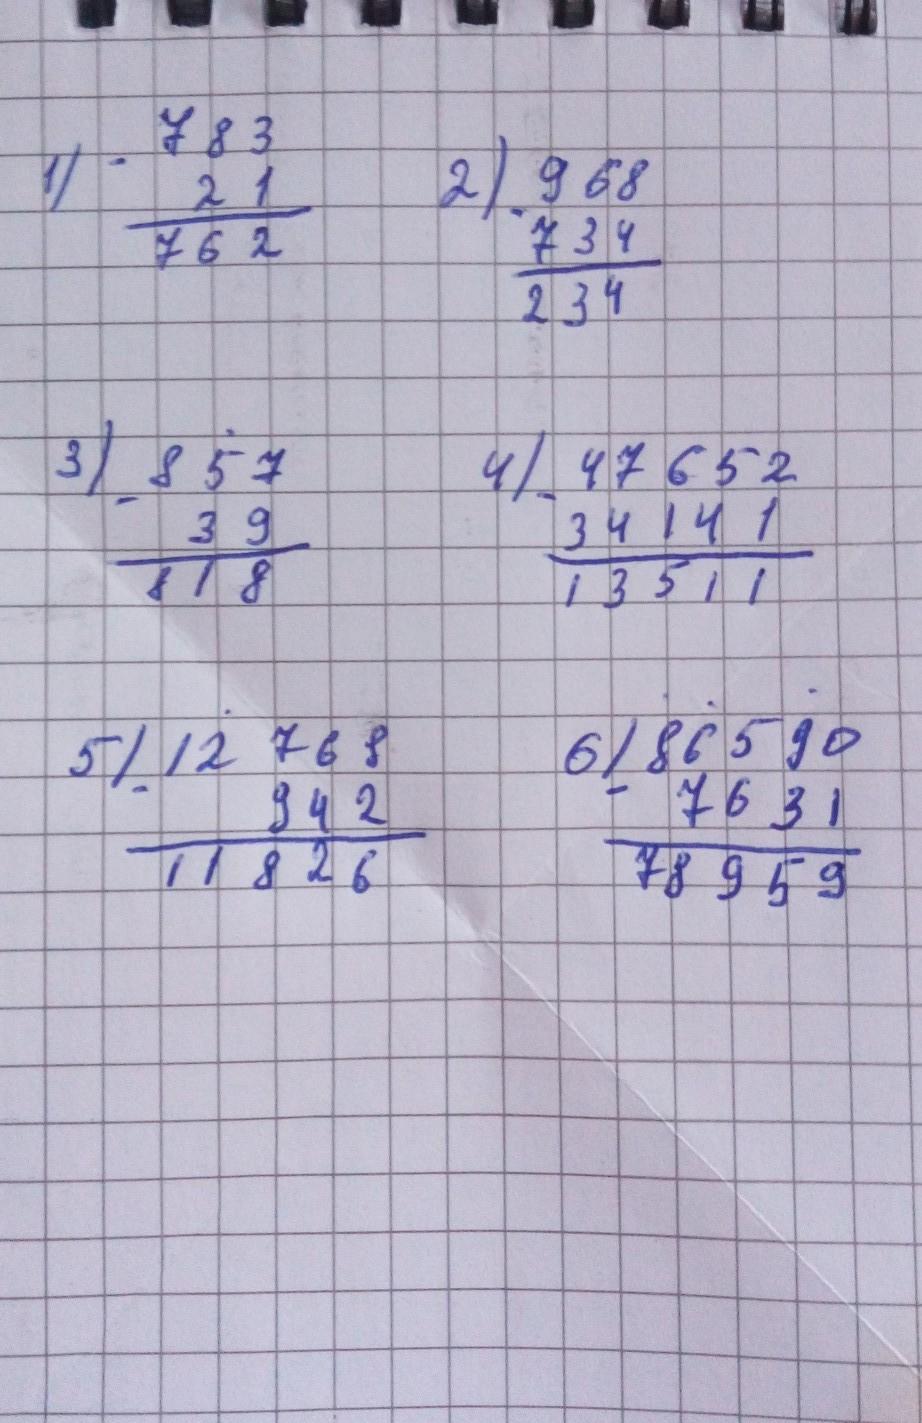 1) - 783
21
762
2) - 968
734
234
3) - 857
39
818
4) - 47652
34141
13511
5) - 12 768
942
11 826
6) - 86590
7631
78959